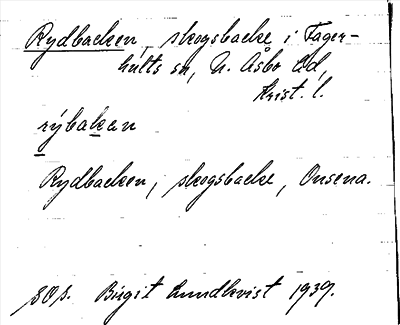 Rydbacken, skogsbacke i Fager-
hults sn, N. Åsbo hd,
Krist. l.
rýbakan
Rydbacken, skogsbacke, Onsena.
Birgit Lundkvist 1939.